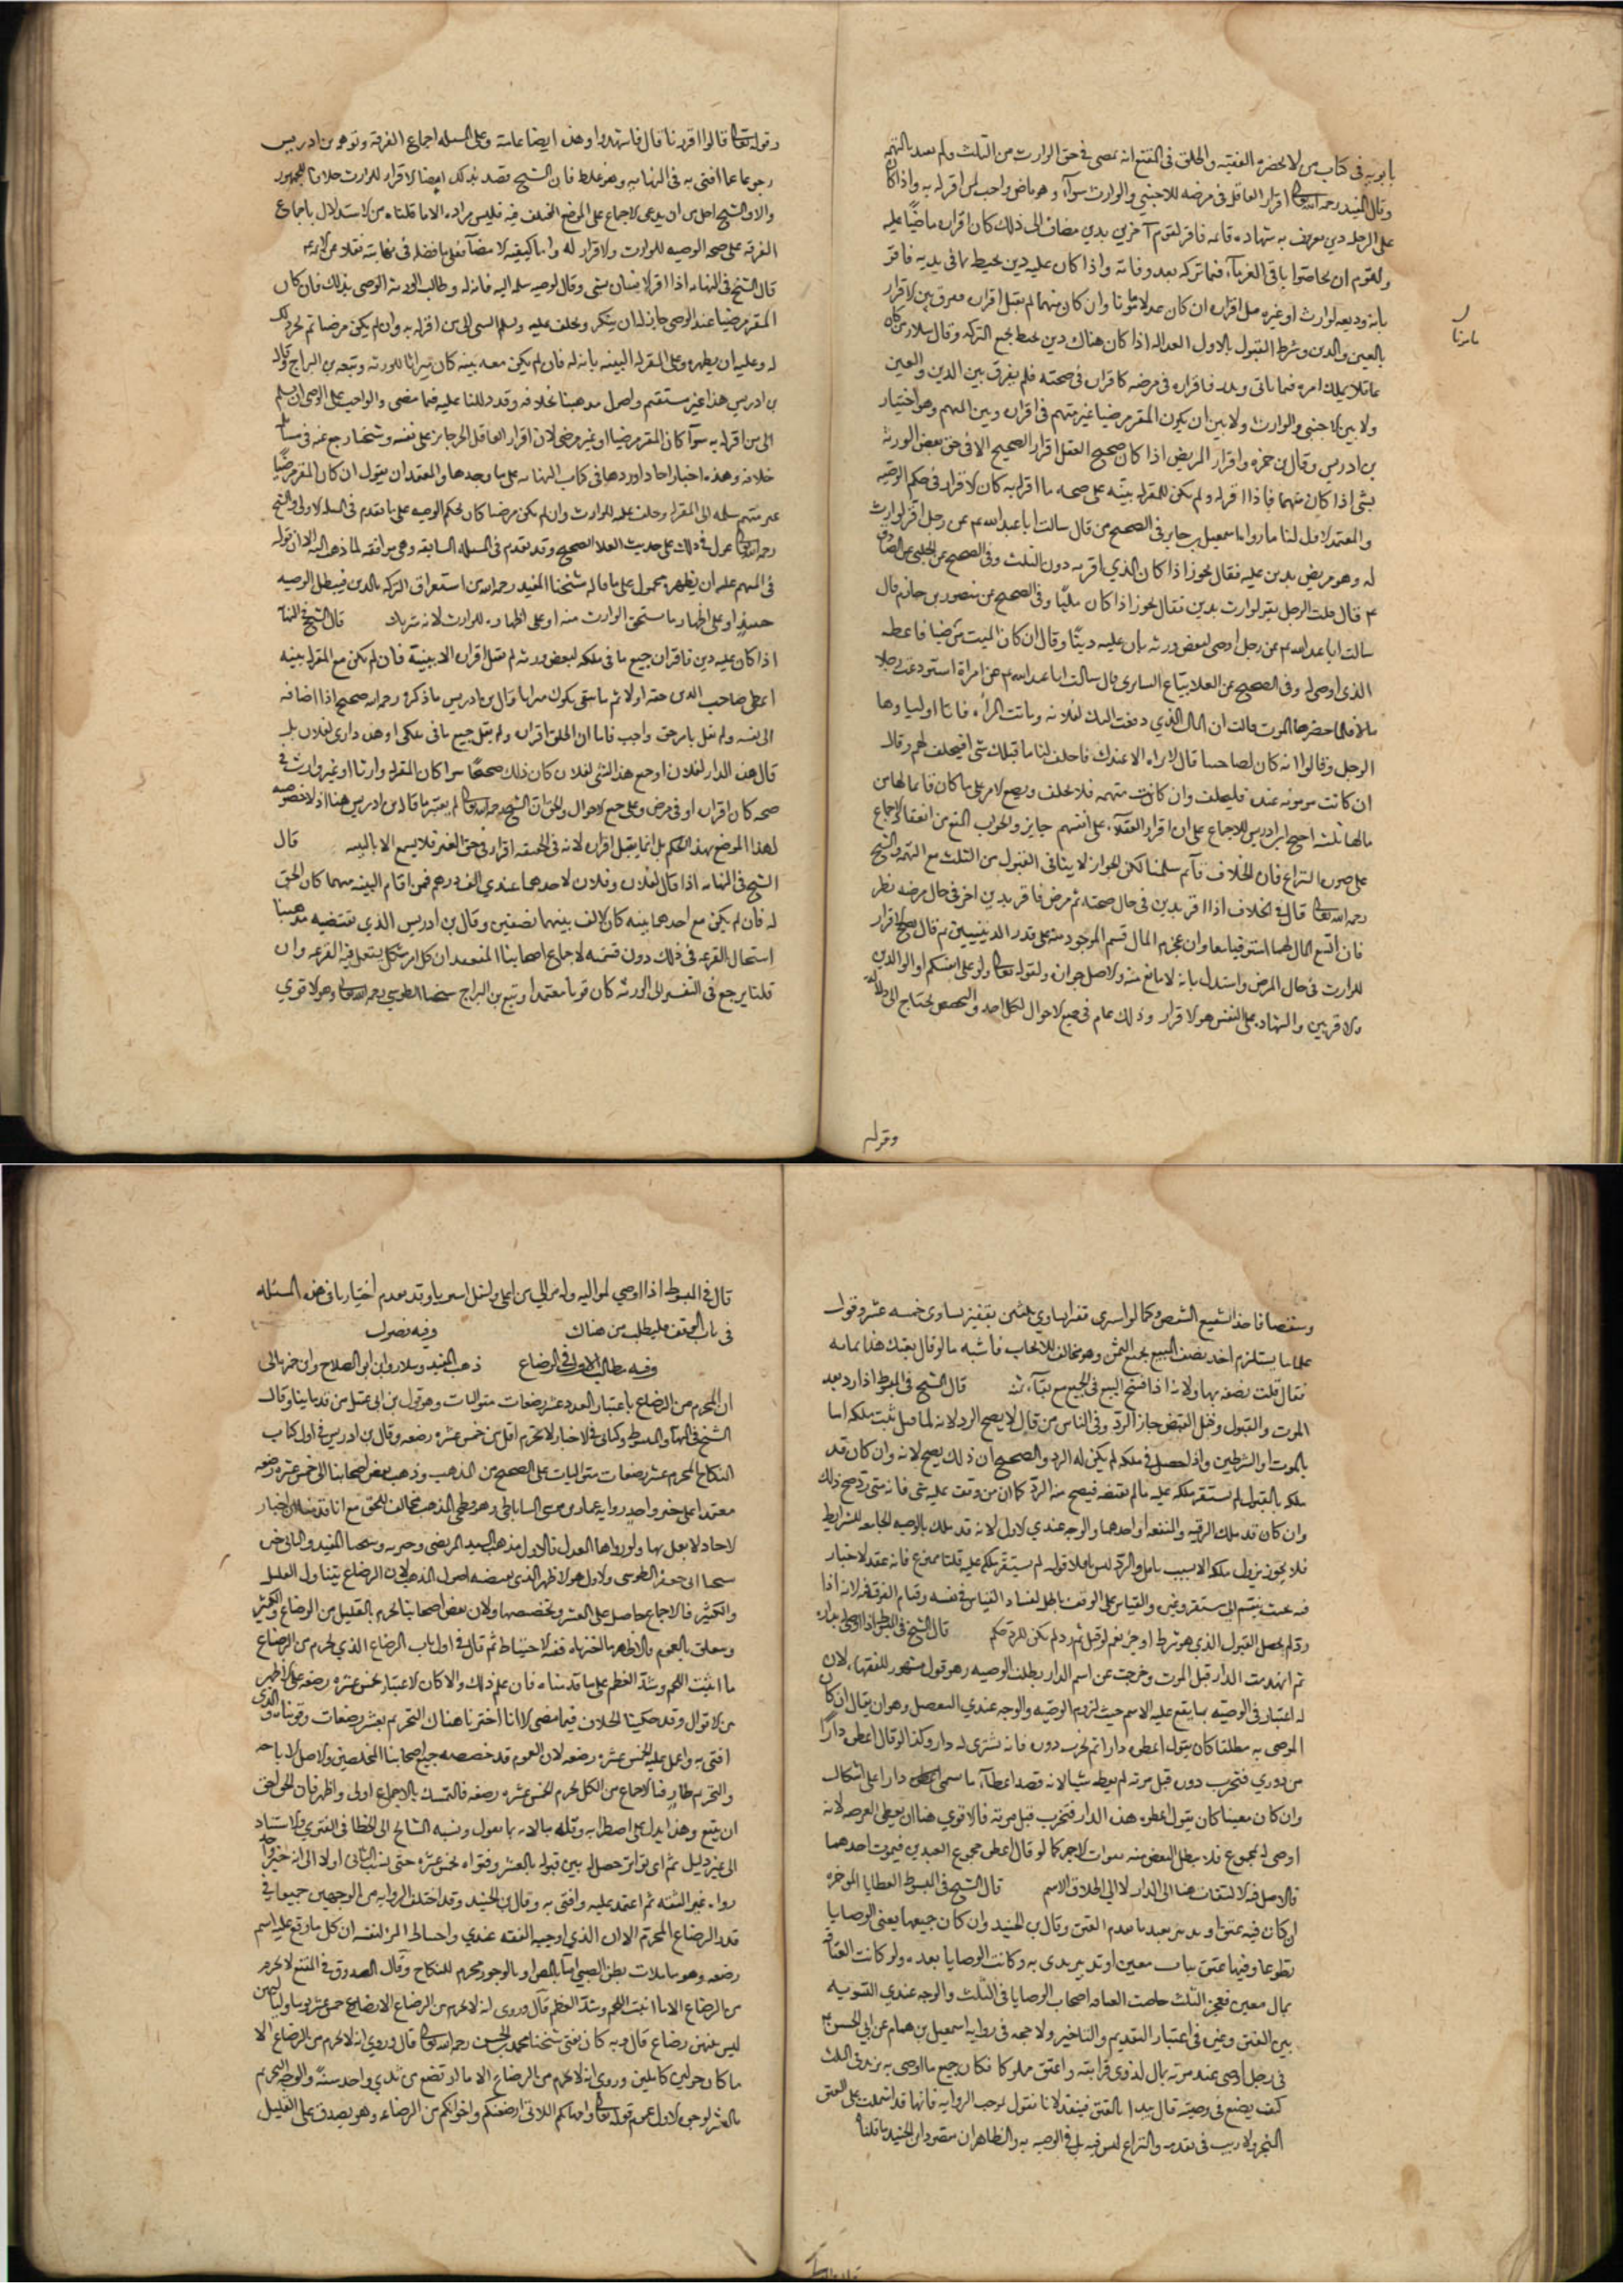 بابويه في كتاب من لا يحضره الفقيه واطلق في المقنع انه يمضى في حق الوارث من الثلث ولم يقيد بالتهمة
وقال المفيد رحمه الله تعالى اقرار العاقل في مرضه للاجنبي والوارث سواء وهو ماض واجب لمن اقر له به واذا كان
على الرجل دين معروف به شهادة قائمة فاقر لقوم آخرين بدين مضاف الى ذلك كان اقراره ماضيا عليه
وللقوم ان يحاصوا باقي الغرماء فيما تركه بعد وفاته واذا كان عليه دين يحيط بما في يديه فاقر
بانه وديعة لوارث او غيره قبل اقراره ان كان عدلا مأمونا وان كان متهما لم يقبل اقراره ففرق بين الاقرار
بالعين والدين وشرط القبول بالاول العدالة اذا كان هناك دين يحيط بجميع التركة وقال سلار من كان
عاقلا يملك امره فيما ياتي ويذر فاقراره في مرضه كاقراره في صحته فلم يفرق بين الدين والعين
ولا بين الاجنبي والوارث ولا بين ان يكون المقر مرضيا غير متهم في اقراره وبين المتهم وهو اختيار
بن ادريس وقال بن حمزة واقرار المريض اذا كان صحيح العقل اقرار الصحيح الا في حق بعض الورثة
بشئ اذا كان متهما فاذا اقر له ولم يكن للمقر له بينة على صحة ما اقر له به كان الاقرار في حكم الوصية
والمعتمد الاول لنا ما رواه اسمعيل بن جابر في الصحيح قال سالت ابا عبد الله ع عن رجل اقر لوارث
له وهو مريض بدين عليه فقال يجوز اذا كان الذي اقر به دون الثلث وفي الصحيح عن الحلبي عن الصادق
ع قال قلت الرجل يقر لوارث بدين فقال يجوز اذا كان مليا وفي الصحيح عن منصور بن حازم قال
سالت ابا عبد الله ع عن رجل اوصى لبعض ورثته بان عليه دينا وقال ان كان الميت مرضيا فاعطه
الذي اوصى له وفي الصحيح عن العلا بياع السابري قال سالت ابا عبد الله ع عن امراة استودعت رجلا
مالا فلما حضرها الموت قالت ان المال الذي دفعت اليك لفلانة وماتت المرأة فاتا اولياوها
الرجل وقالوا انه كان لصاحبتنا مال لا نراه الا عندك فاحلف لنا ما قبلك شئ افيحلف لهم وقال
ان كانت مومونة عنده فليحلف وان كانت متهمة فلا يحلف ويضع الامر على ما كان فانما لها من
مالها ثلثه احتج ابن ادريس بالاجماع على ان اقرار العقلاء على انفسهم جايز والجواب المنع من انعقاد الاجماع
على صورة النزاع فان الخلاف قائم سلمنا لكن الجواز لا ينافي القبول من الثلث مع التهمة والشيخ
رحمه الله تعالى قال في الخلاف اذا اقر بدين في حال صحته ثم مرض فاقر بدين اخر في حال مرضه نظر
فان اتسع المال لهما استوفيا معا وان عجز المال قسم الموجود منه على قدر الدينين ثم قال يصح الاقرار
للوارث في حال المرض واستدل بانه لا مانع منه والاصل جوازه ولقوله تعالى ولو على انفسكم او الوالدين
والاقربين والشهادة على النفس هو الاقرار وذلك عام في جميع الاحوال لكل احد والتخصيص يحتاج الى دلالة
وقوله
وقوله تعالى قالوا اقررنا قال فاشهدوا وهذه ايضا عامة وعلى المسله اجماع الفرقة وتوهم بن ادريس
رجوعا عما افتى به في النهاية وهو غلط فان الشيخ قصد بذلك امضا الاقرار للوارث خلافا للجمهور
والا والشيخ اجل من ان يدعى الاجماع على الموضع المختلف فيه فليس مراده الا ما قلناه من الاستدلال باجماع
الفرقة على صحة الوصية للوارث والاقرار له واما كيفية الامضاء فعلى ما فصله في نهايته نقلا عن الائمة
قال الشيخ في النهاية اذا اقر لانسان بشئ وقال لوصيه سلمه اليه فانه له وطالب الورثة الوصي بذلك فان كان
المقر مرضيا عند الوصي جاز له ان ينكر ويحلف عليه ويسلم الشئ الى من اقر له به وان لم يكن مرضيا لم يجز ذلك
له وعليه ان يظهره وعلى المقر له البينة بانه له فان لم يكن معه بينة كان ميراثا للورثة وتبعه بن البراج وقال
بن ادريس هذا غير مستقيم واصول مذهبنا بخلافه وقد دللنا عليه فيما مضى والواجب على الوصي ان يسلم
الى من اقر له به سوآ كان المقر مرضيا او غير مرضي لان اقرار العاقل الحر جايز على نفسه وشيخنا رجع عنه في مسائل
خلافه وهذه اخبار احاد اوردها في كتاب النهاية على ما وجدها والمعتمد ان يقول ان كان المقر مرضيا
غير متهم سلمه الى المقر له وحلف عليه للوارث وان لم يكن مرضيا كان بحكم الوصية على ما تقدم في المسله الاولى والشيخ
رحمه الله تعالى عول في ذلك على حديث العلا الصحيح وقد تقدم في المسله السابقة وهي موافقة لما ذهب اليه الا ان قوله
في المتهم عليه ان يظهره محمول على ما قاله شيخنا المفيد رحمه الله من استغراق التركة بالدين فيبطل الوصية
حينئذ او على اظهار ما يستحق الوارث منه او على اظهاره للوارث لانه شريك قال الشيخ في النهاية
اذا كان عليه دين فاقر ان جميع ما في ملكه لبعض ورثته لم يقبل اقراره الا ببينة فان لم يكن مع المقر له بينة
اعطى صاحب الدين حقه اولا ثم ما يبقى يكون ميراثا وقال بن ادريس ما ذكره رحمه الله صحيح اذا اضافه
الى نفسه ولم يقل بامر حق واجب فاما ان اطلق اقراره ولم يقل جميع ما في ملكي او هذه داري لفلان بل
قال هذه الدار لفلان او جميع هذا الشئ لفلان كان ذلك صحيحا سوا كان المقر له وارثا او غير وارث في
صحة كان اقراره او في مرض وعلى جميع الاحوال والحق ان الشيخ رحمه الله تعالى لم يعتبر ما قاله بن ادريس هنا اذ لا خصوصية
لهذا الموضع بهذا الحكم بل انما لم يقبل اقراره لانه في الحقيقة اقرار في حق الغير فلا يسمع الا بالبينه قال
الشيخ في النهاية اذا قال لفلان وفلان لاحدهما عندي الف درهم فمن اقام البينة منهما كان الحق
له فان لم يكن مع احدهما بينة كان الالف بينهما نصفين وقال بن ادريس الذي يقتضيه مذهبنا
استعمال القرعة في ذلك دون قسمته لاجماع اصحابنا المنعقد ان كل امر مشكل يستعمل فيه القرعة وان
قلنا يرجع في التفسير الى الورثة كان قويا معتمدا وتبع بن البراج شيخنا الطوسي رحمه الله تعالى وهو الاقوى
وشقصا فاخذ الشفيع الشقص وكما لو اشترى قفيزا يساوي ثلثين بقفيز يساوي خمسة عشر وقولك
علماؤنا يستلزم اخذ نصف المبيع بجميع الثمن وهو مخالف للايجاب فاشبه ما لو قال بعتك هذا بمائة
فقال قبلت نصفه بها ولانه اذا فسخ البيع في الجميع مع بقاء ثمنه قال الشيخ في المبسوط اذا رد بعد
الموت والقبول وقبل القبض جاز الرد وفي الناس من قال لا يصح الرد لانه لما قبل ثبت ملكه اما
بالموت او الشرطين واذا حصل في ملكه لم يكن له الرد والصحيح ان ذلك يصح لانه وان كان قد
ملكه بالقبول لم يستقر ملكه عليه ما لم يقبضه فيصح منه الرد كما ان من وقف عليه شئ فانه متى رد صح ذلك
وان كان قد ملك الرقبة والمنفعة او احدهما والوجه عندي الاول لانه قد ملك بالوصية الجامعة للشرايط
فلا يجوز يزول ملكه الا بسبب ناقل والرد ليس ناقلا قوله لم يستقر ملكه عليه قلنا ممنوع فانه عقد لا خيار
فيه بحيث ينقسم الى مستقر وغيره والقياس على الوقف باطل لفساد القياس في نفسه وقيام الفرق فيه لانه اذا
رد لم يحصل القبول الذي هو شرط او جزء نعم لو قبل ثم رد لم يكن للرد حكم قال الشيخ في المبسوط اذا اوصى بدار
ثم انهدمت الدار قبل الموت وخرجت عن اسم الدار بطلت الوصية وهو قول مشهور للفقهاء لان
له اعتبارا في الوصية بما يقع عليه الاسم حيث لزوم الوصية والوجه عندي التفصيل وهو ان يقال ان كان
الموصى به مطلقا كان يقول اعطوه دارا ثم يخرب دوره فانه يشترى له دار وكذا لو قال اعطوه دارا
من دوري فتخرب دوره قبل موته لم يعطه شيا لانه قصد اعطاء ما سمى دارا على اشكال
وان كان معينا كان يقول اعطوه هذه الدار فتخرب قبل موته فالاقوى هنا ان يعطى العرصة لانه
اوصى له بمجموع فلا يبطل البعض منه بفوات الاخر كما لو قال اعطوه مجموع العبدين فيموت احدهما
فالاصل فيه الالتفات هنا الى الدار لا الى اطلاق الاسم قال الشيخ في المبسوط العطايا الموخرة
ان كان فيه عتق او تدبير بعد ما تقدم العتق وقال بن الجنيد وان كان جميعها يعنى الوصايا
تطوعا وفيها عتق بنات معين او تدبير بدى به وكانت الوصايا بعده ولو كانت العتاقة
بمال معين فعجز الثلث حاصت العتاقة اصحاب الوصايا في الثلث والوجه عندي التسوية
بين العتق وغيره في اعتبار التقديم والتاخير ولا حجة في رواية اسمعيل بن همام عن ابي الحسن ع
في رجل اوصى عند موته بمال لذوي قرابته واعتق مملوكا فكان جميع ما اوصى به يزيد في الثلث
كيف يصنع في وصيته قال يبدا بالعتق فينفذ لانا نقول بموجب الرواية فانها قد اشتملت على العتق
المنجز ولا ريب في تقدمه والنزاع ليس فيه بل في الوصية به والظاهر ان مقصود ابن الجنيد ما قلناه
قال في المبسوط اذا اوصى لمواليه وله موالي من اعلى واسفل اسير يا وقد تقدم اختيارنا في هذه المسئله
في باب الوقف فليطلب من هناك وفيه فصول
وفيه مطالب الاول في الرضاع ذهب المفيد وسلار وابن ابي الصلاح وابن حمزة الى
ان المحرم من الرضاع باعتبار العدد عشر رضعات متواليات وهو قول بن ابي عقيل من قدمائنا وقال
الشيخ في النهاية والمبسوط وكتابي الاخبار لا يحرم اقل من خمس عشرة رضعة وقال بن ادريس في اول كتاب
النكاح المحرم عشر رضعات متواليات على الصحيح من المذهب وذهب بعض اصحابنا الى خمس عشرة رضعة
معتمدا على خبر واحد رواية عمار بن موسى الساباطي وهو فطحي المذهب مخالف للحق مع انا قد بينا ان اخبار
الاحاد لا يعمل بها ولو رواها العدل فالاول مذهب السيد المرتضى وخيرته وشيخنا المفيد والثاني خيرة
شيخنا ابي جعفر الطوسي والاول هو الاظهر الذي يقتضيه اصول المذهب لان الرضاع يتناول القليل
والكثير فالاجماع حاصل على العشر وتخصيصها ولان بعض اصحابنا يحرم بالقليل من الرضاع والكثير
ويتعلق بالعموم فالاظهر ما اخترناه ففيه الاحتياط ثم قال في اول باب الرضاع الذي يحرم من الرضاع
ما انبت اللحم وشد العظم على ما قدمناه فان علم ذلك والا كان الاعتبار بخمس عشرة رضعة على الاظهر
من الاقوال وقد حكينا الخلاف فيما مضى الا انا اخترنا هناك التحريم بعشر رضعات وقويناه والذي
افتى به واعمل عليه الخمس عشرة رضعة لان العموم قد خصصه جميع اصحابنا المحصلين والاصل الاباحة
والتحريم طار فبالاجماع من الكل يحرم الخمس عشرة رضعة فالتمسك بالاجماع اولى واظهر فان الحق احق
ان يتبع وهذا يدل على اضطرابه وقلة مبالاته بما يقول ونسبة المشايخ الى الخطا في الفتوى والاستناد
الى غير دليل ثم اي تواتر حصل له بين قبوله بالعشر وفتواه بخمس عشرة حتى نسب الثاني اولا الى انه خبر واحد
رواه غير الثقة ثم اعتمد عليه وافتى به وقال بن الجنيد وقد اختلف الرواية من الوجهين جميعا في
قدر الرضاع المحرم الا ان الذي اوجبه الفقه عندي واحتياط المرء لنفسه ان كل ما وقع عليه اسم
رضعة وهو ما ملات بطن الصبي اما بالمص او بالوجور محرم للنكاح وقال الصدوق في المقنع لا يحرم
من الرضاع الا ما انبت اللحم وشد العظم قال وروى انه لا يحرم من الرضاع الا رضاع خمسة عشر يوما ولياليهن
ليس بينهن رضاع قال وبه كان يفتى شيخنا محمد بن الحسن رحمه الله تعالى قال وروي انه لا يحرم من الرضاع الا
ما كان حولين كاملين وروي انه لا يحرم من الرضاع الا ما ارتضع من ثدي واحد سنة والوجه التحريم
بالعشر لوجوه الاول عموم قوله تعالى وامهاتكم اللاتي ارضعنكم واخواتكم من الرضاعة وهو يصدق على القليل